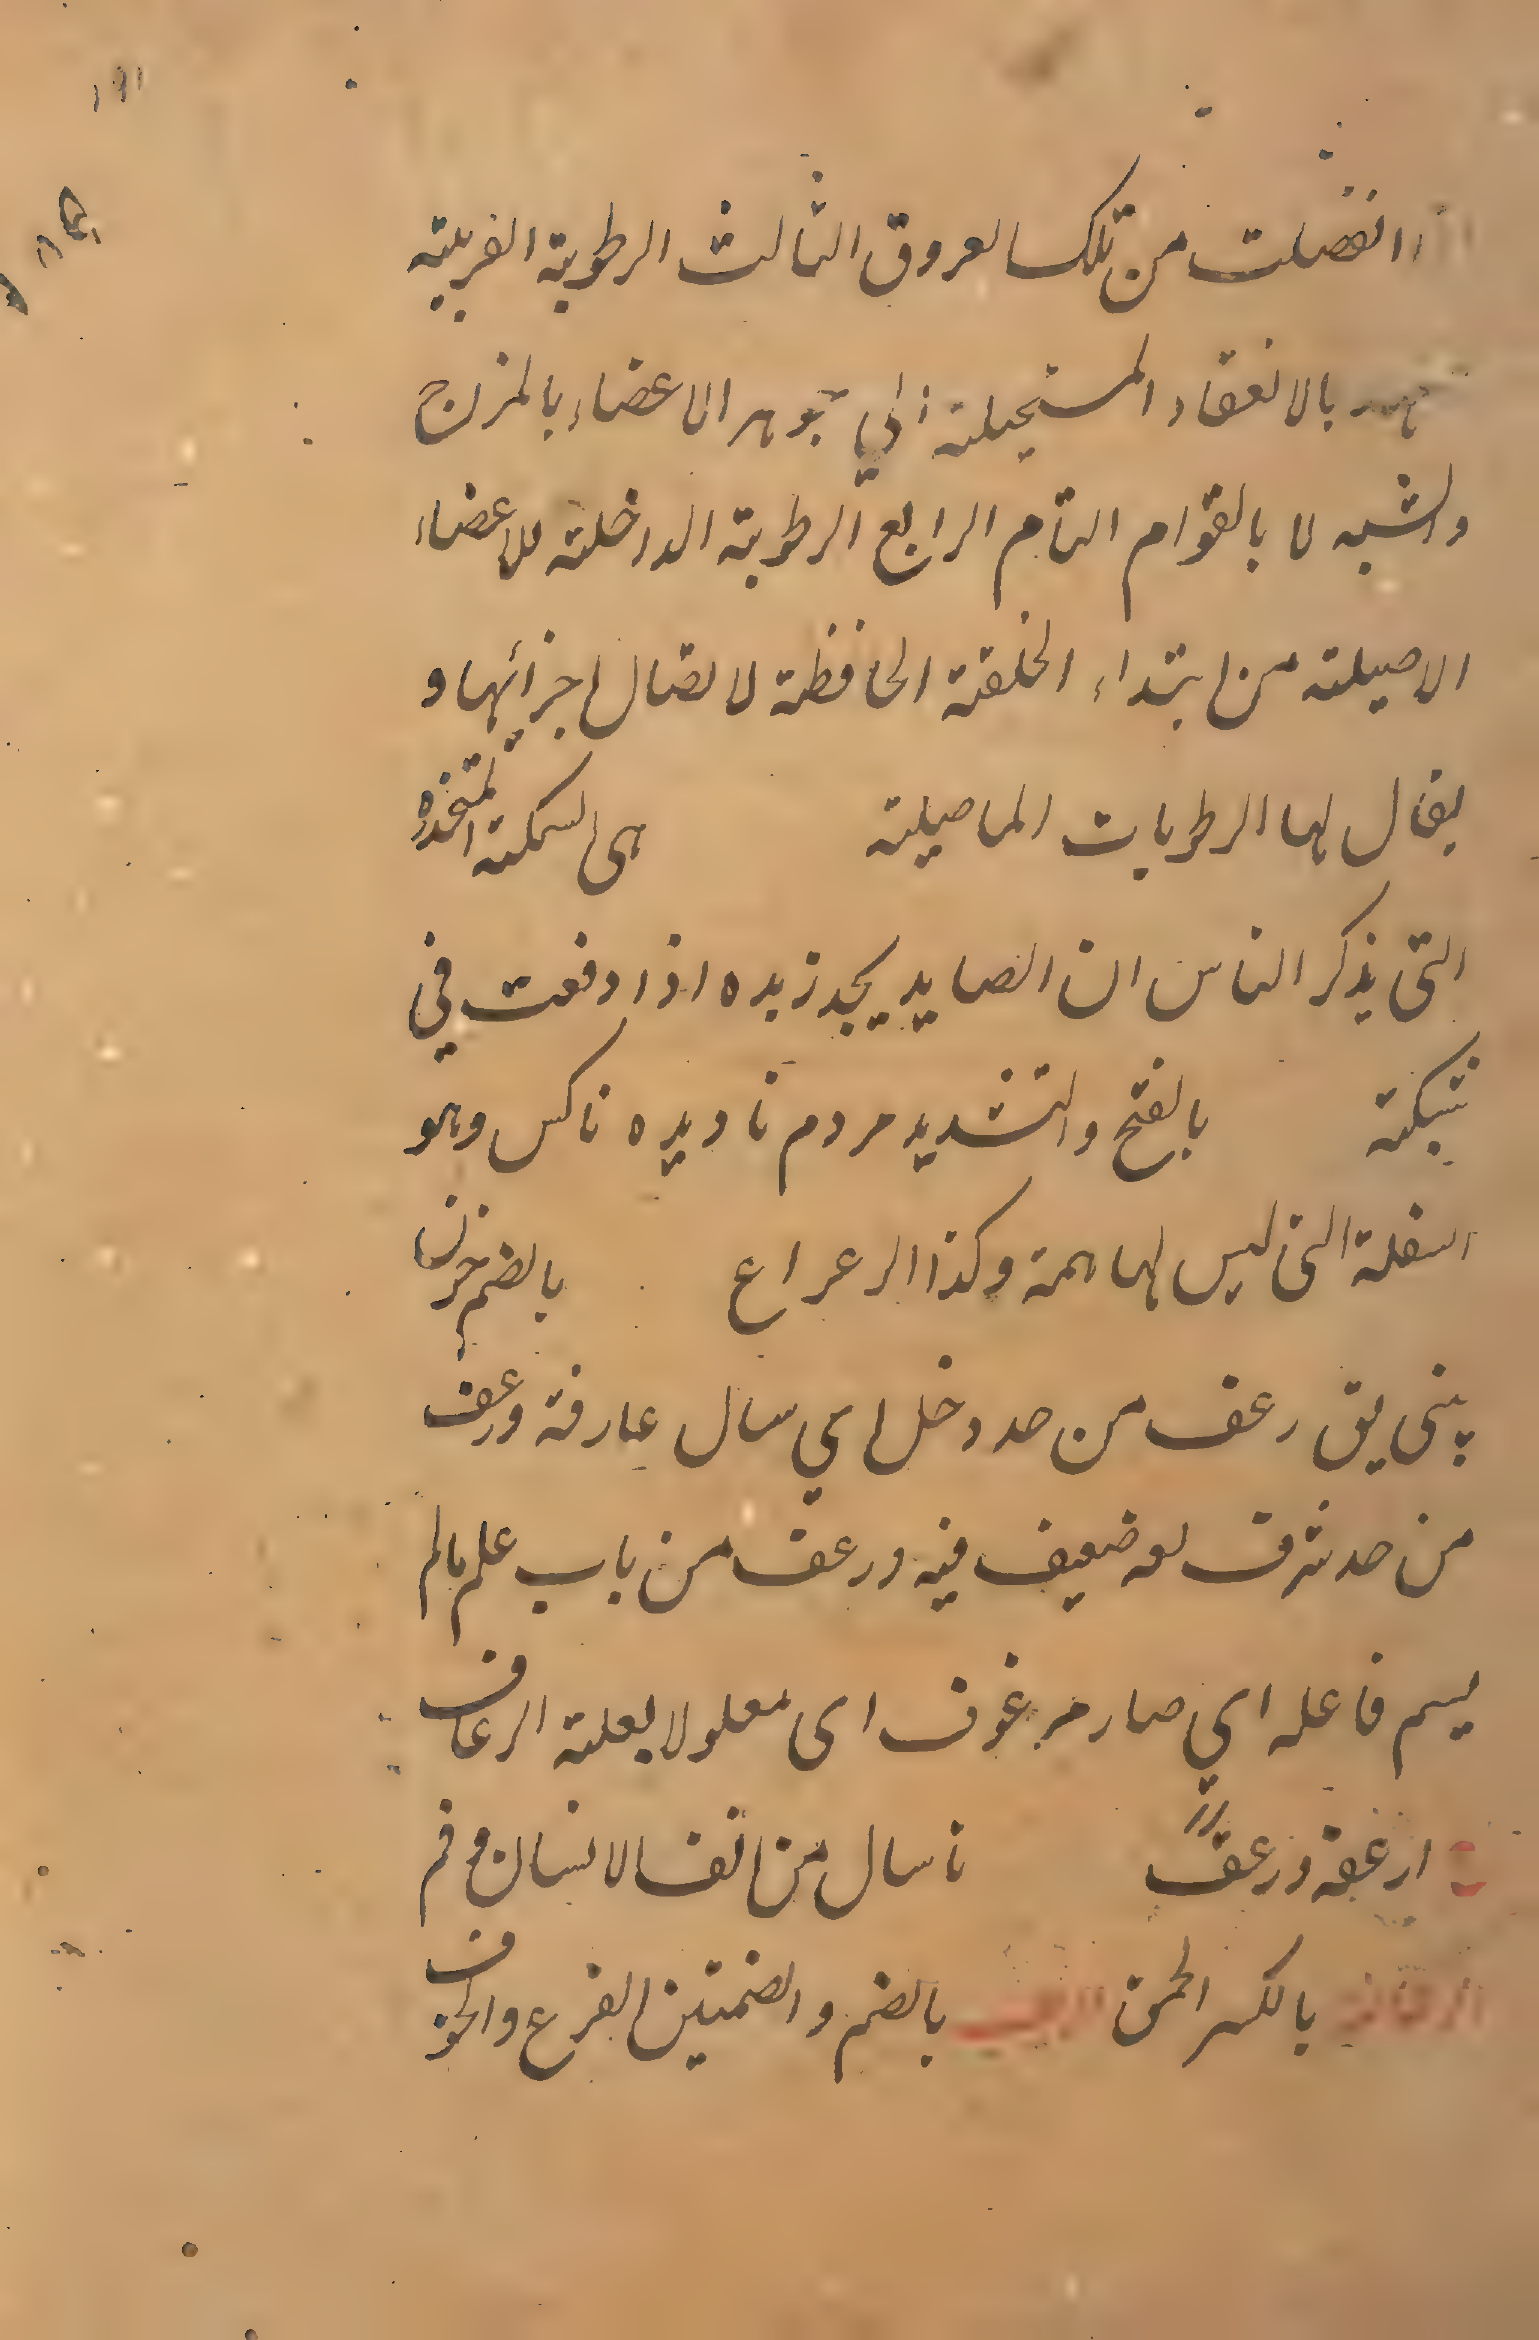 انفصلت من تلك العروق الثالث الرطوبة القريبة
بالانعقاد المستحيلة الي جوهر الاعضاء بالمزاج
والشبه لا بالقوام التام الرابع الرطوبة الداخلة للاعضاء
الاصيلة من ابتداء الخلقة الحافظة لاتصال اجزائها و
يقال لها الرطوبات الماصيلة هى السمكة المتخدره
التى يذكر الناس ان الصايد يجد زبده اذا دفعت في
شبكة بالفتح والتشديد مردم ناديده ناكس وهو
السفلة التى ليس لها همة وكذا الرعراع بالضم خون
بينى يق رعف من حد دخل اي سال عارفة ورعف
من حد شرف لغه ضعيف فيه ورعف من باب علم مالم
يسم فاعله اي صار مرعوف اى معلولا بعلة الرعاف
ارعفة ورعف ناسال من انف الانسان و فم
بالكسر الحمق بالضم والضمتين الفزع والخوف